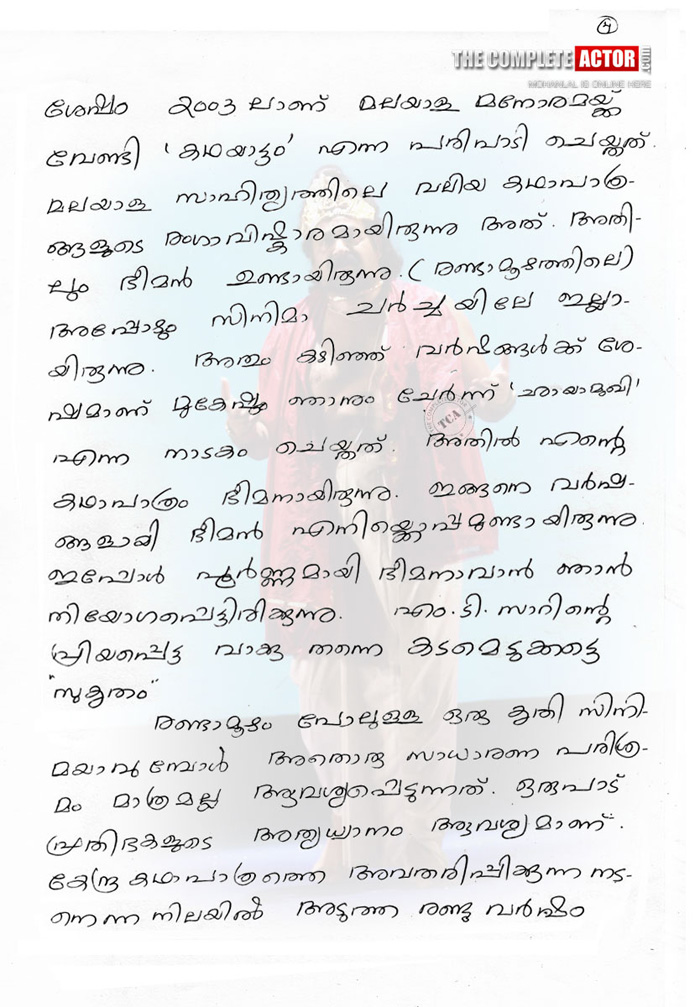 4
THE COMPLETE ACTOR .com
MOHANLAL IS ONLINE HERE
ശേഷം 2003 ലാണ് മലയാള മനോരമയ്ക്ക്
വേണ്ടി 'കഥയാട്ടം' എന്ന പരിപാടി ചെയ്തത്.
മലയാള സാഹിത്യത്തിലെ വലിയ കഥാപാത്ര-
ങ്ങളുടെ രംഗാവിഷ്കാരമായിരുന്നു അത്. അതി-
ലും ഭീമൻ ഉണ്ടായിരുന്നു. (രണ്ടാമൂഴത്തിലെ)
അപ്പോഴും സിനിമാ ചർച്ചയിലേ ഇല്ലാ-
യിരുന്നു. അതും കഴിഞ്ഞ് വർഷങ്ങൾക്ക് ശേ-
ഷമാണ് മുകേഷും ഞാനും ചേർന്ന് 'ഛായാമുഖി'
TCA
എന്ന നാടകം ചെയ്തത്. അതിൽ എന്റെ
കഥാപാത്രം ഭീമനായിരുന്നു. ഇങ്ങനെ വർഷ-
ങ്ങളായി ഭീമൻ എനിയ്ക്കൊപ്പമുണ്ടായിരുന്നു.
ഇപ്പോൾ പൂർണ്ണമായി ഭീമനാവാൻ ഞാൻ
നിയോഗപ്പെട്ടിരിക്കുന്നു. എം.ടി. സാറിന്റെ
പ്രിയപ്പെട്ട വാക്കു തന്നെ കടമെടുക്കട്ടെ
"സുകൃതം"
രണ്ടാമൂഴം പോലുള്ള ഒരു കൃതി സിനി-
മയാവുമ്പോൾ അതൊരു സാധാരണ പരിശ്ര-
മം മാത്രമല്ല ആവശ്യപ്പെടുന്നത്. ഒരുപാട്
പ്രതിഭകളുടെ അത്യധ്വാനം ആവശ്യമാണ്.
കേന്ദ്ര കഥാപാത്രത്തെ അവതരിപ്പിക്കുന്ന നട-
നെന്ന നിലയിൽ അടുത്ത രണ്ടു വർഷം